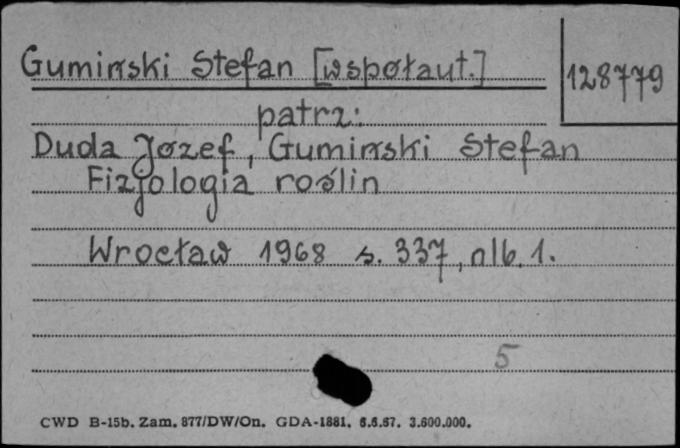 Gumiński Stefan [współaut.]
128779
patrz:
Duda Józef, Gumiński Stefan
Fizjologia roślin
Wrocław 1968 s. 337, nlb. 1.
5
CWD B-15b. Zam. 877/DW/On. GDA-1881. 6.6.67. 3.600.000.